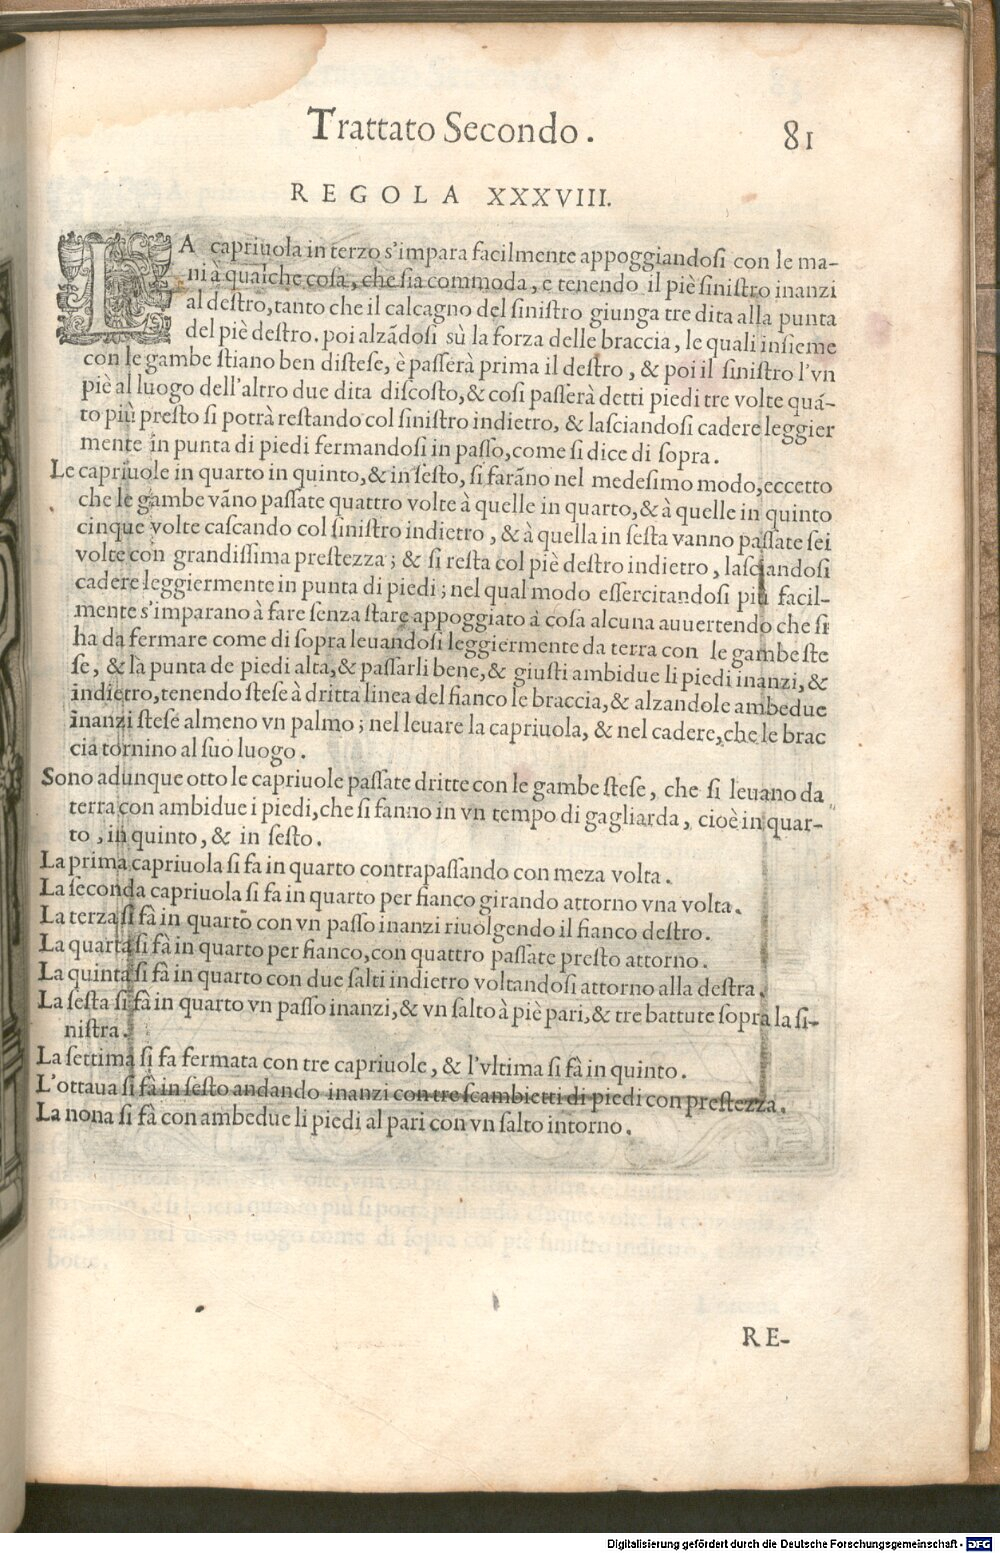 Trattato Secondo. 81
REGOLA XXXVIII.
LA capriuola in terzo s'impara facilmente appoggiandosi con le ma-
ni à qualche cosa, che sia commoda, e tenendo il piè sinistro inanzi
al destro, tanto che il calcagno del sinistro giunga tre dita alla punta
del piè destro. poi alzãdosi sù la forza delle braccia, le quali insieme
con le gambe stiano ben distese, è passerà prima il destro, & poi il sinistro l'vn
piè al luogo dell'altro due dita discosto, & cosi passerà detti piedi tre volte quá-
to più presto si potrà restando col sinistro indietro, & lasciandosi cadere leggier
mente in punta di piedi fermandosi in passo, come si dice di sopra.
Le capriuole in quarto in quinto, & in sesto, si farãno nel medesimo modo, eccetto
che le gambe vãno passate quattro volte à quelle in quarto, & à quelle in quinto
cinque volte cascando col sinistro indietro, & à quella in sesta vanno passate sei
volte con grandissima prestezza; & si resta col piè destro indietro, lasciandosi
cadere leggiermente in punta di piedi; nel qual modo essercitandosi più facil-
mente s'imparano à fare senza stare appoggiato à cosa alcuna auuertendo che si
ha da fermare come di sopra leuandosi leggiermente da terra con le gambe ste
se, & la punta de piedi alta, & passarli bene, & giusti ambidue li piedi inanzi, &
indietro, tenendo stese à dritta linea del fianco le braccia, & alzandole ambedue
inanzi stese almeno vn palmo; nel leuare la capriuola, & nel cadere, che le brac
cia tornino al suo luogo.
Sono adunque otto le capriuole passate dritte con le gambe stese, che si leuano da
terra con ambidue i piedi, che si fanno in vn tempo di gagliarda, cioè in quar-
to, in quinto, & in sesto.
La prima capriuola si fa in quarto contrapassando con meza volta.
La seconda capriuola si fa in quarto per fianco girando attorno vna volta.
La terza si fà in quarto con vn passo inanzi riuolgendo il fianco destro.
La quarta si fà in quarto per fianco, con quattro passate presto attorno.
La quinta si fà in quarto con due salti indietro voltandosi attorno alla destra.
La sesta si fà in quarto vn passo inanzi, & vn salto à piè pari, & tre battute sopra la si-
nistra.
La settima si fa fermata con tre capriuole, & l'vltima si fà in quinto.
L'ottaua si fà in sesto andando inanzi con tre scambietti di piedi con prestezza.
La nona si fà con ambedue li piedi al pari con vn salto intorno.
RE-
Digitalisierung gefördert durch die Deutsche Forschungsgemeinschaft - DFG